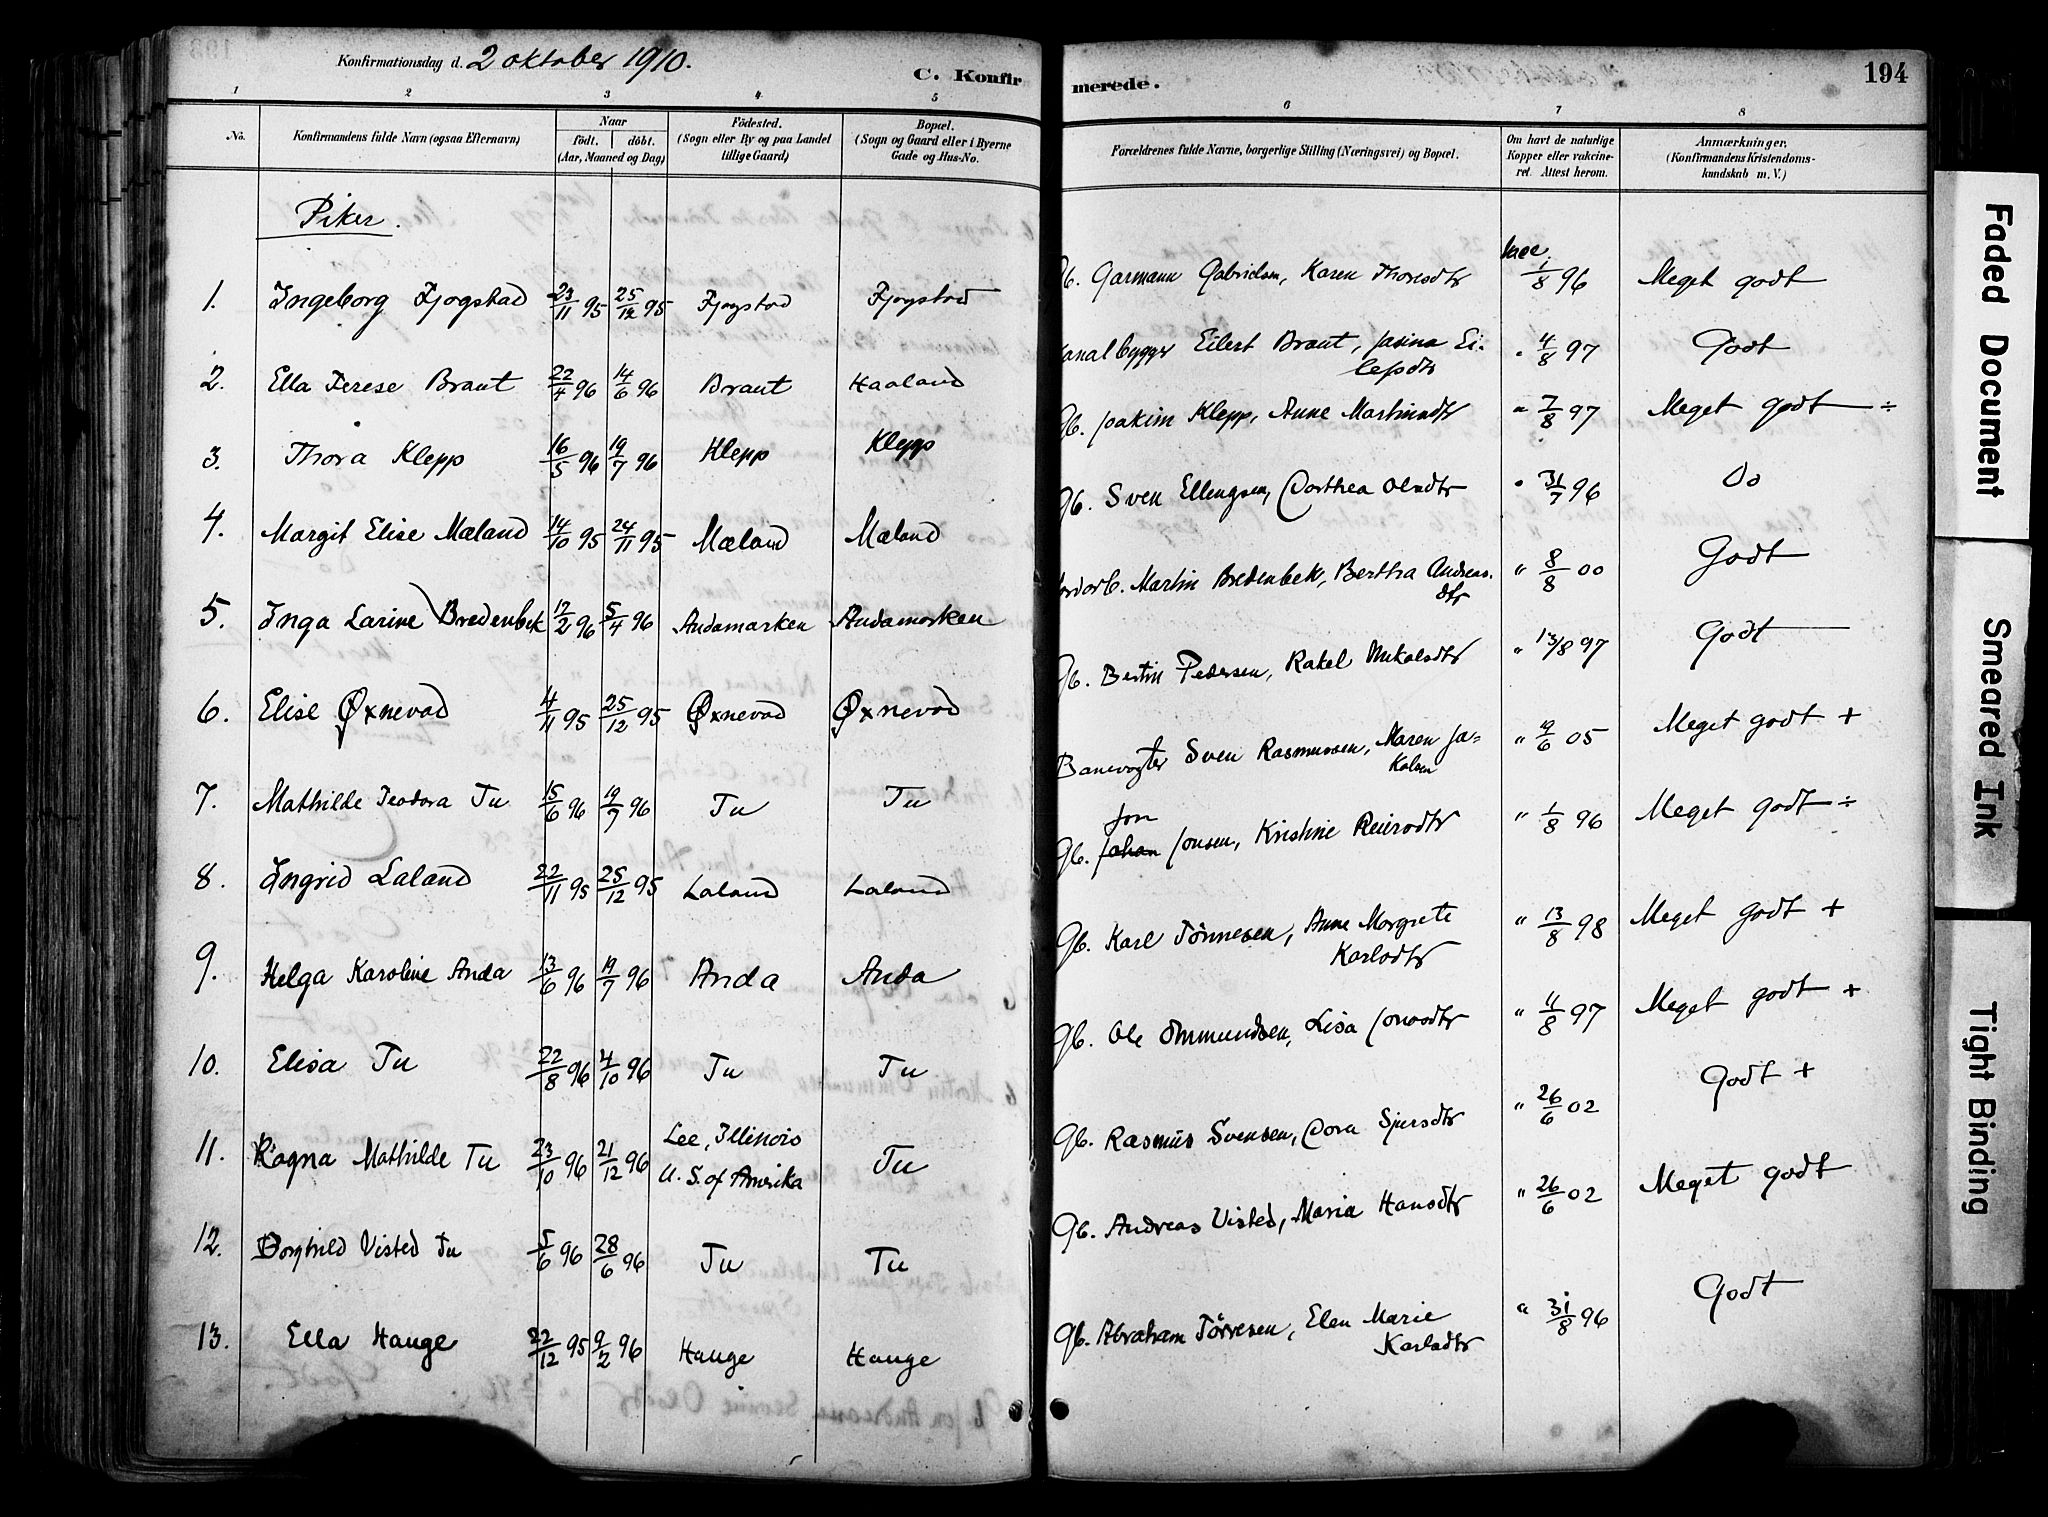 Konfirmationsdag d. 2 oktober 1910.
C. Konfirmerede.
194
1 2 3 4 5 6 7 8
No. Konfirmandens fulde Navn (ogsaa Efternavn) Naar födt. döbt. (Aar, Maaned og Dag) Födested. (Sogn eller By og paa Landet tillige Gaard) Bopæl. (Sogn og Gaard eller i Byerne Gade og Hus-No. Forældrenes fulde Navne, borgerlige Stilling (Næringsvei) og Bopæl. Om havt de naturlige Kopper eller vakcineret. Attest herom. Anmærkninger. (Konfirmandens Kristendomskundskab m. V.)
Piker.
1. Ingeborg Fjogstad 23/11 95 25/12 95 Fjogstad Fjogstad Gb. Garmann Gabrielsen, Karen Thoresdtr vacc. 1/8 96 Meget godt
2. Ella Terese Braut 22/4 96 14/6 96 Braut Haaland Kanalbygger Eilert Braut, Jasina Eilefsdtr " 4/8 97 Godt
3. Thora Klepp 16/5 96 19/7 96 Klepp Klepp Gb. Joakim Klepp, Anne Martinsdtr " 7/8 97 Meget godt ÷
4. Margit Elise Mæland 14/10 95 24/11 95 Mæland Mæland Gb. Sven Ellengsen, Dorthea Olsdtr " 31/7 96 Do
5. Inga Larine Bredenbek 12/2 96 5/4 96 Andamarken Andamarken Jordarb. Martin Bredenbek, Bertha Andreasdtr " 8/8 00 Godt
6. Elise Øxnevad 4/11 95 25/12 95 Øxnevad Øxnevad Gb. Bertin Pedersen, Rakel Mikalsdtr " 13/8 97 Godt
7. Mathilde Teodora Tu 15/6 96 19/7 96 Tu Tu Banevogter Sven Rasmussen, Maren Jakobsen " 19/6 05 Meget godt +
8. Ingrid Laland 22/11 95 25/12 95 Laland Laland Gb. Johan Jon Jonsen, Kristine Reiersdtr " 1/8 96 Meget godt ÷
9. Helga Karoline Anda 13/6 96 19/7 96 Anda Anda Gb. Karl Tönnesen, Anne Margrete Karlsdtr " 13/8 98 Meget godt +
10. Elisa Tu 22/8 96 4/10 96 Tu Tu Gb. Ole Ommundsen, Lisa Jonasdtr " 11/8 97 Meget godt +
11. Ragna Mathilde Tu 23/10 96 21/12 96 Lee, Illinois U. S. of Amerika Tu Gb. Rasmus Svensen, Dora Sjursdtr " 26/6 02 Godt +
12. Borghild Visted Tu 5/6 96 28/6 96 Tu Tu Gb. Andreas Visted, Maria Hansdtr " 26/6 02 Meget godt
13. Ella Hauge 22/12 95 9/2 96 Hauge Hauge Gb. Abraham Törresen, Elen Marie Karlsdtr " 31/8 96 Godt
Faded Document
Smeared Ink
Tight Binding